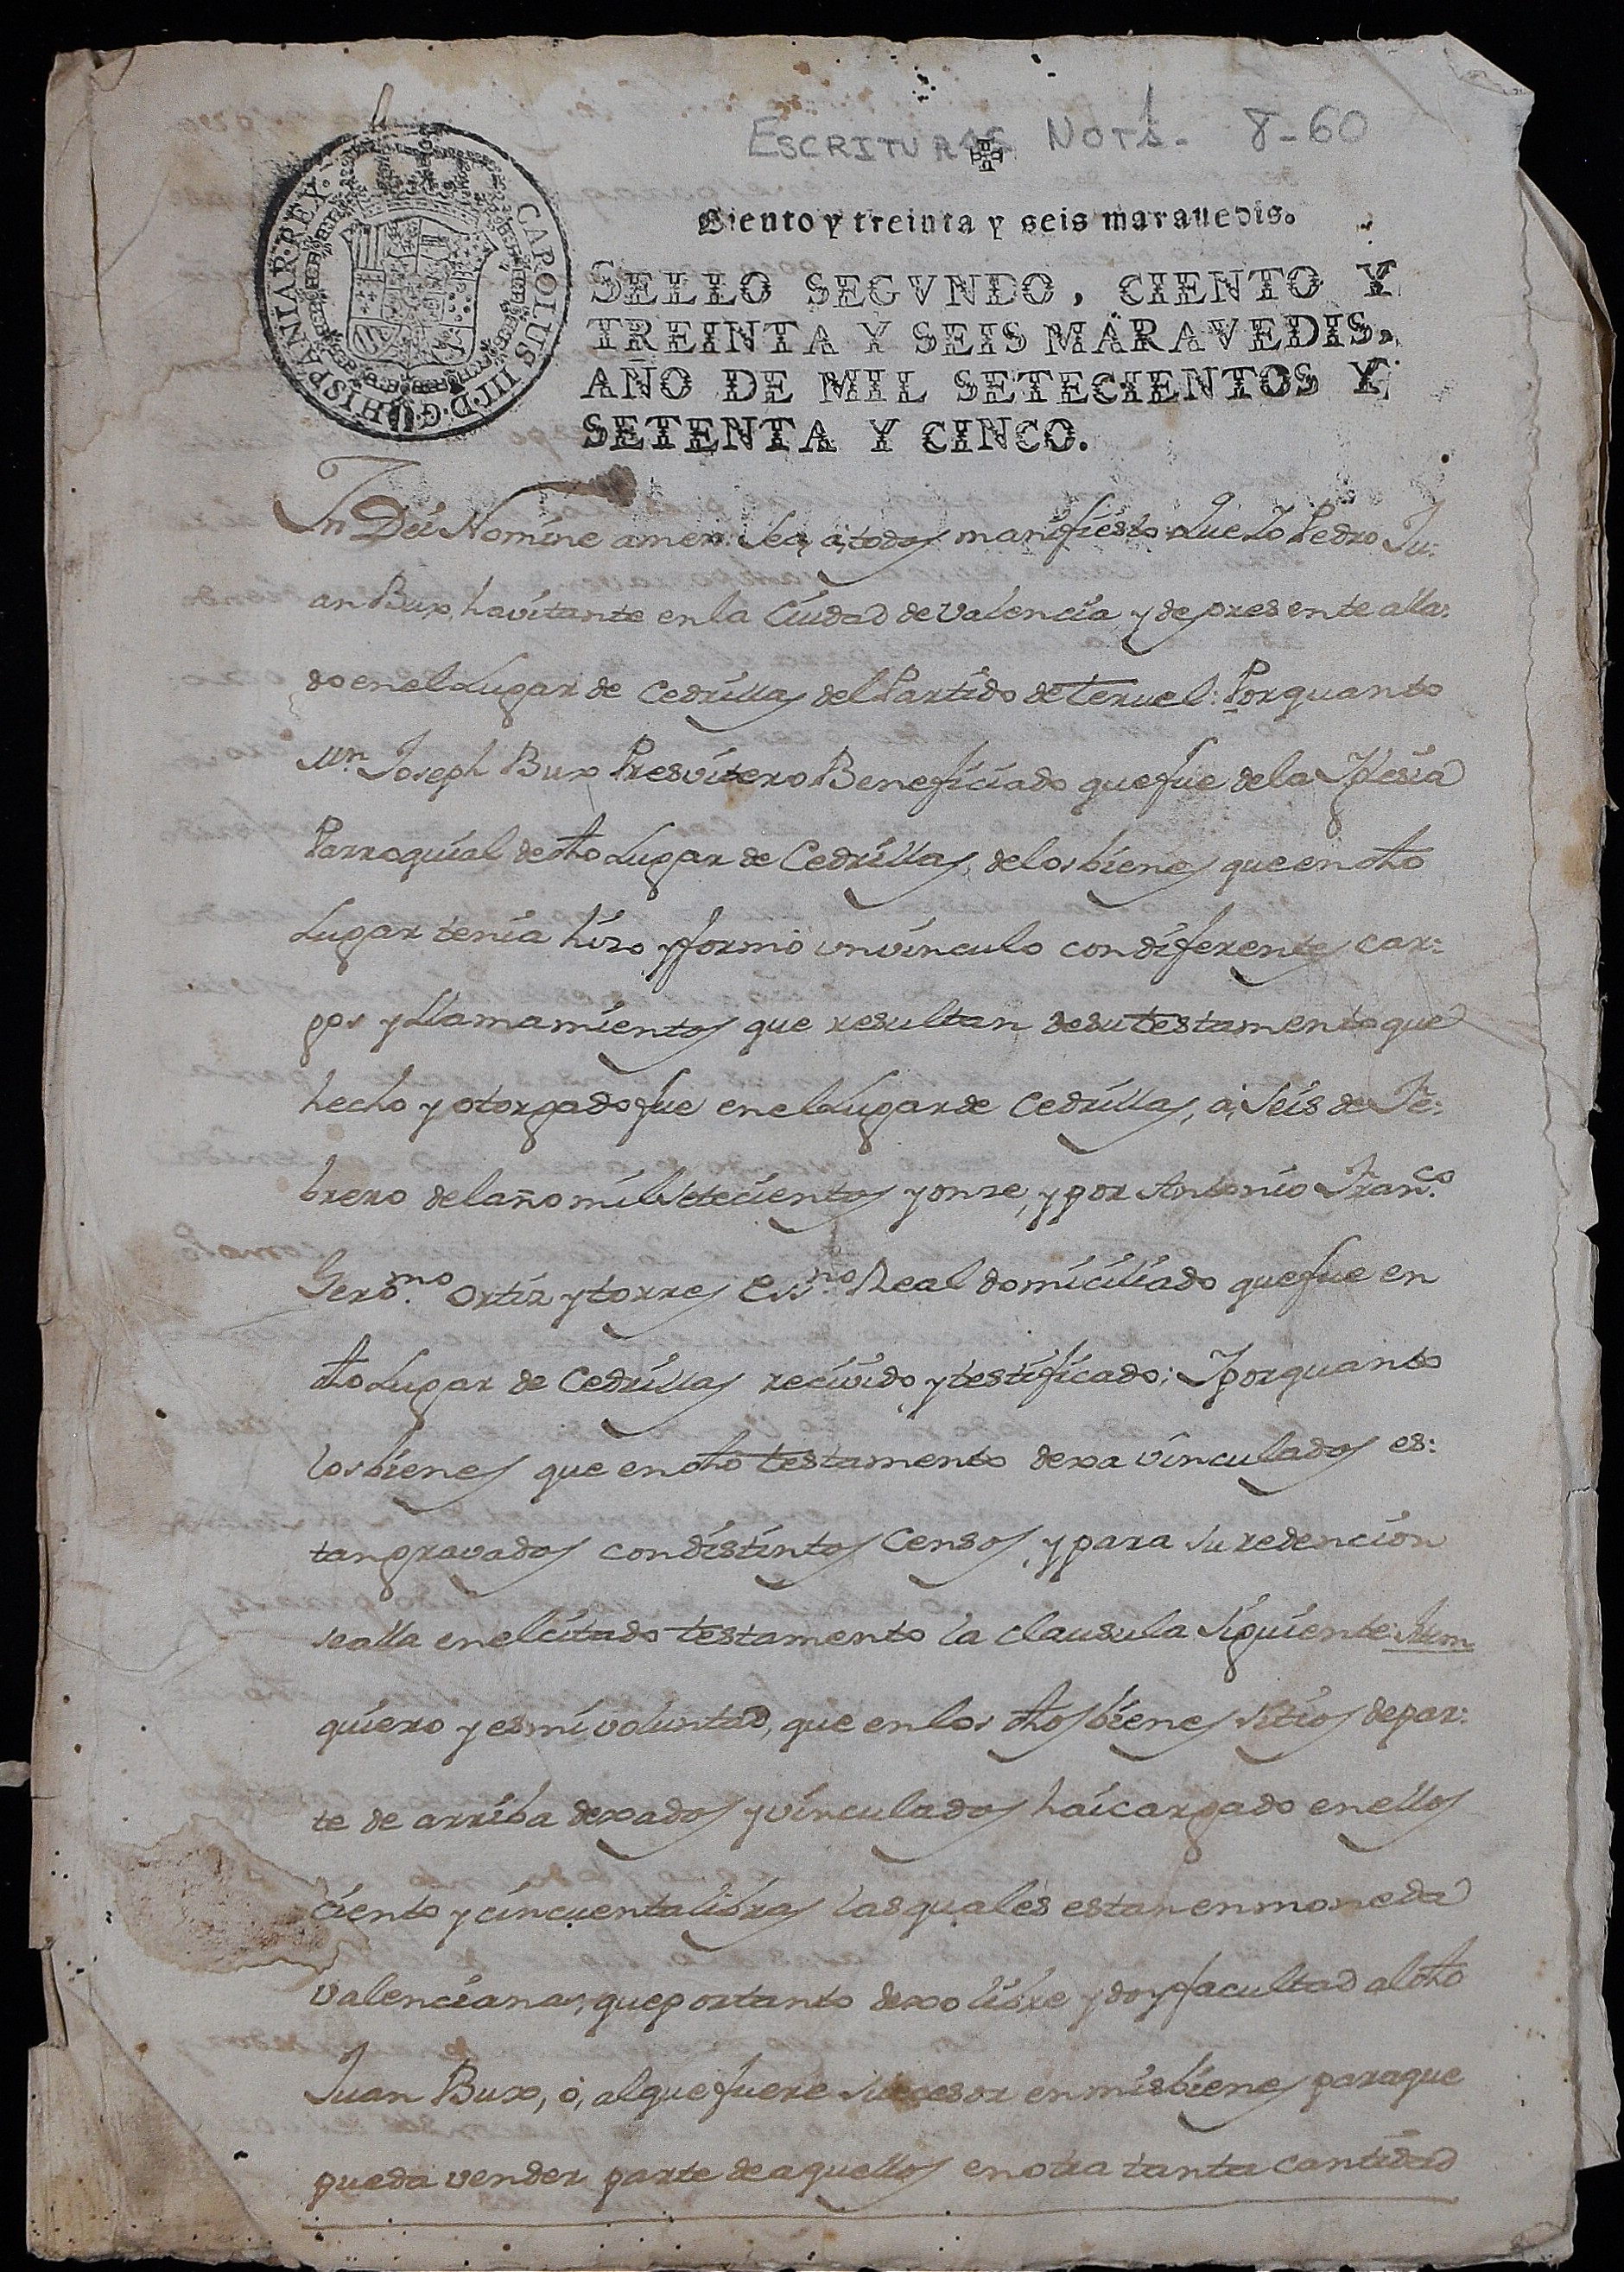 ESCRITURAS NOTS. 8-60
Ciento y treinta y seis marauedis.
CAROLUS III. D. G. HISPANIAR. REX.
SELLO SEGVNDO, CIENTO Y
TREINTA Y SEIS MARAVEDIS,
AÑO DE MIL SETECIENTOS Y
SETENTA Y CINCO.
In Dei Nomine amen: Sea, a, todos manifiesto: Que Yo Pedro Ju:
an Bux, havitante en la Ciudad de Valencia y de presente alla:
do en el Lugar de Cedrillas del Partido de Teruel: Por quanto
Mn. Joseph Bux Presvitero Beneficiado que fue de la Iglesia
Parroquial de dho Lugar de Cedrillas, de los bienes que en dho
Lugar tenia hizo y formo un vinculo con diferentes car:
gos y llamamientos que resultan de su testamento que
hecho y otorgado fue en el Lugar de Cedrillas, a, seis de Fe:
brero del año mil setecientos y onze, y por Antonio Franco.
Geromo. Ortiz y torres Essno. Real domiciliado que fue en
dho Lugar de Cedrillas recivido y testificado; Y por quanto
los bienes que en dho testamento dexa vinculados es:
tan gravados con distintos Censos, y para su redencion
se alla en el citado testamento la clausula siguiente: Item
quiero y es mi voluntad, que en los dhos bienes sitios de par:
te de arriba dexados y vinculados hai cargado en ellos
ciento y cincuenta libras las quales estan en moneda
Valenciana, que por tanto dexo libre y doy facultad al dho
Juan Bux, o, al que fuere sucesor en mis bienes para que
pueda vender parte de aquellos en otra tanta cantidad